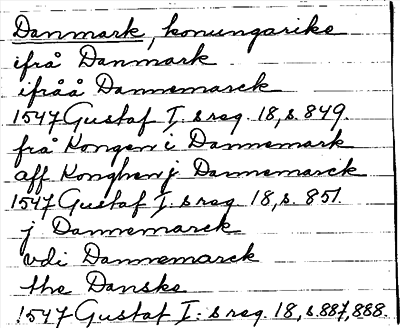 Danmark, konungarike
ifrå Danmark
ifråå Dannemarck
1547 Gustaf I:s reg. 18, s. 849.
frå Kongen i Dannemark
aff Konghen j Dannemarck
1547 Gustaf I:s reg. 18, s. 851.
j Dannemarck
vdi Dannemarck
the Danske
1547 Gustaf I:s reg. 18, s. 887, 888.